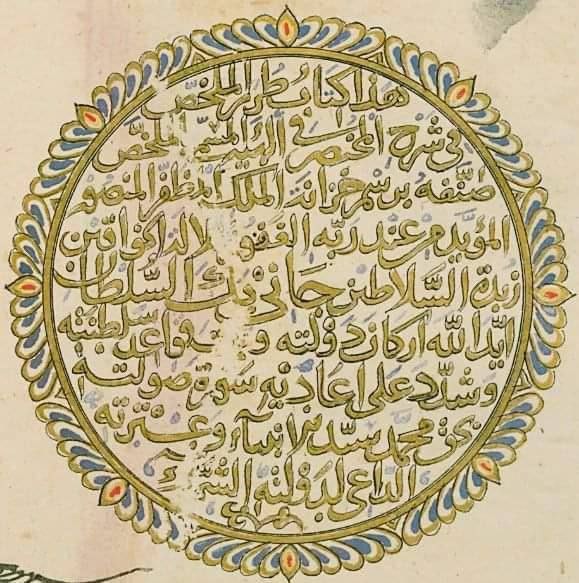 هذا كتاب طراز الملخص
في شرح المختصر في الهيئة المسمى الملخص
صنفه برسم خزانة الملك المظفر المنصور
المؤيد من عند ربه الغفور
زبدة السلاطين جاني بك السلطان
ايد الله اركان دولته و قواعد سلطنته
وشدد على اعاديه سورة صولته
بحق محمد سيد الانبياء وعترته
الداعي لدولته